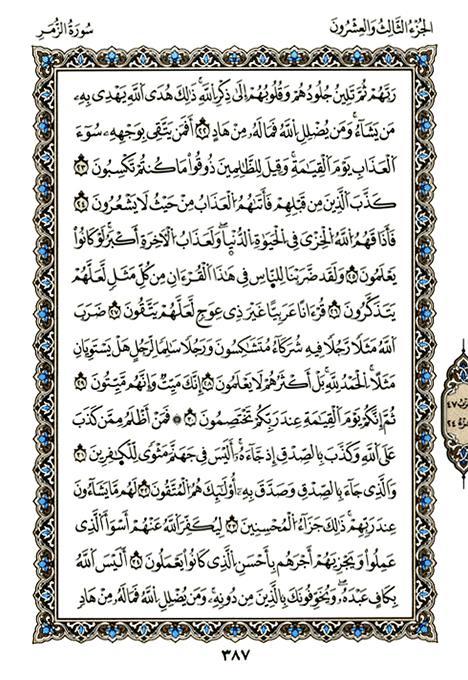 الجُزْءُ الثَّالِثُ وَالعِشْرُونَ
سُورَةُ الزُّمَر
رَبَّهُمْ ثُمَّ تَلِينُ جُلُودُهُمْ وَقُلُوبُهُمْ إِلَىٰ ذِكْرِ اللَّهِ ذَٰلِكَ هُدَى اللَّهِ يَهْدِي بِهِ
مَن يَشَاءُ وَمَن يُضْلِلِ اللَّهُ فَمَا لَهُ مِنْ هَادٍ ٢٢ أَفَمَن يَتَّقِي بِوَجْهِهِ سُوءَ
الْعَذَابِ يَوْمَ الْقِيَٰمَةِ وَقِيلَ لِلظَّٰلِمِينَ ذُوقُوا مَا كُنتُمْ تَكْسِبُونَ ٢٣
كَذَّبَ الَّذِينَ مِن قَبْلِهِمْ فَأَتَىٰهُمُ الْعَذَابُ مِنْ حَيْثُ لَا يَشْعُرُونَ ٢٤
فَأَذَاقَهُمُ اللَّهُ الْخِزْيَ فِي الْحَيَوٰةِ الدُّنْيَا وَلَعَذَابُ الْآخِرَةِ أَكْبَرُ لَوْ كَانُوا
يَعْلَمُونَ ٢٥ وَلَقَد ضَّرَبْنَا لِلنَّاسِ فِي هَٰذَا الْقُرْءَانِ مِن كُلِّ مَثَلٍ لَّعَلَّهُمْ
يَتَذَكَّرُونَ ٢٦ قُرْءَانًا عَرَبِيًّا غَيْرَ ذِي عِوَجٍ لَّعَلَّهُمْ يَتَّقُونَ ٢٧ ضَرَبَ
اللَّهُ مَثَلًا رَّجُلًا فِيهِ شُرَكَاءُ مُتَشَٰكِسُونَ وَرَجُلًا سَٰلِمًا لِّرَجُلٍ هَلْ يَسْتَوِيَانِ
مَثَلًا الْحَمْدُ لِلَّهِ بَلْ أَكْثَرُهُمْ لَا يَعْلَمُونَ ٢٨ إِنَّكَ مَيِّتٌ وَإِنَّهُم مَّيِّتُونَ ٢٩
ثُمَّ إِنَّكُمْ يَوْمَ الْقِيَٰمَةِ عِندَ رَبِّكُمْ تَخْتَصِمُونَ ٣٠ ۞ فَمَنْ أَظْلَمُ مِمَّن كَذَبَ
عَلَى اللَّهِ وَكَذَّبَ بِالصِّدْقِ إِذ جَّاءَهُ أَلَيْسَ فِي جَهَنَّمَ مَثْوًى لِّلْكَٰفِرِينَ ٣١
وَالَّذِي جَاءَ بِالصِّدْقِ وَصَدَّقَ بِهِ أُولَٰئِكَ هُمُ الْمُتَّقُونَ ٣٢ لَهُم مَّا يَشَاءُونَ
عِندَ رَبِّهِمْ ذَٰلِكَ جَزَاءُ الْمُحْسِنِينَ ٣٣ لِيُكَفِّرَ اللَّهُ عَنْهُمْ أَسْوَأَ الَّذِي
عَمِلُوا وَيَجْزِيَهُمْ أَجْرَهُم بِأَحْسَنِ الَّذِي كَانُوا يَعْمَلُونَ ٣٤ أَلَيْسَ اللَّهُ
بِكَافٍ عَبْدَهُ وَيُخَوِّفُونَكَ بِالَّذِينَ مِن دُونِهِ وَمَن يُضْلِلِ اللَّهُ فَمَا لَهُ مِنْ هَادٍ
٣٨٧